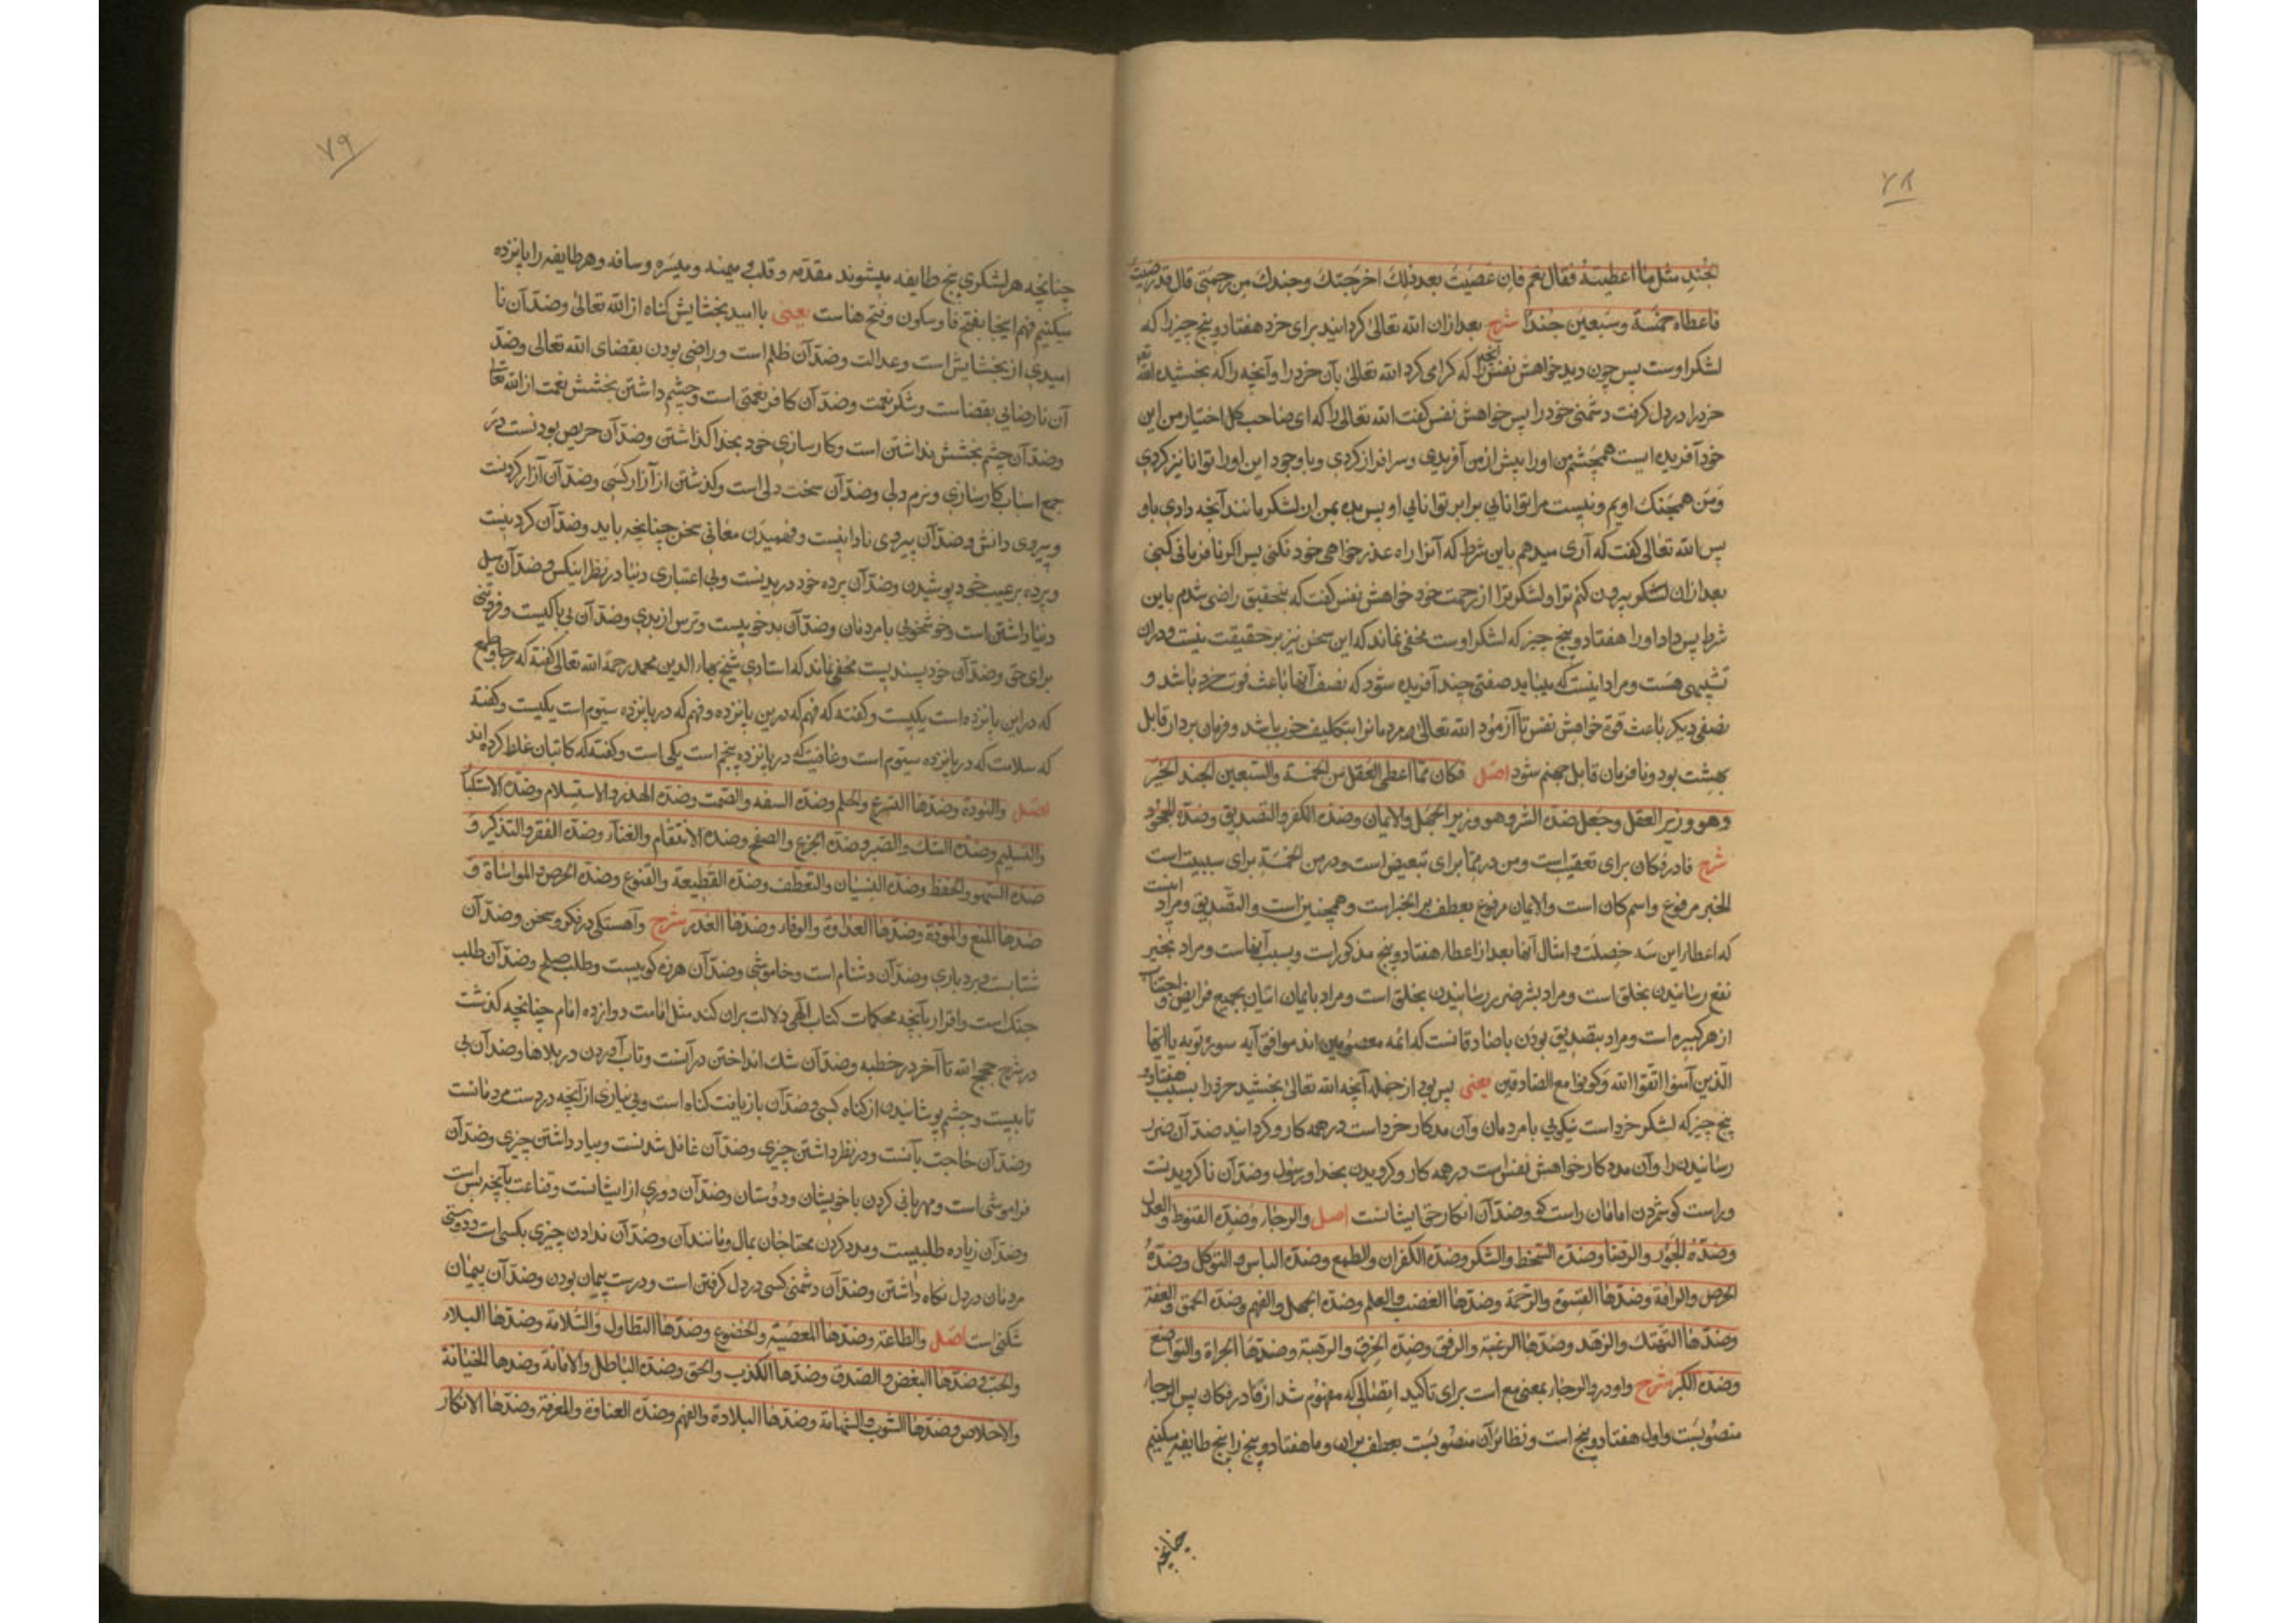 ۷۸
الجند مثل ما اعطیته فقال نعم فان عصیت بعد ذلک اخرجتک وجندک من رحمتی قال قد رضیت
فاعطاه خمسة وسبعین جندا شرح بعد ازان الله تعالی کردانید برای خرد هفتاد و پنج چیز را که
لشکر اوست پس چون دید خواهش نفس آنچه را که کرامی کرد الله تعالی بآن خرد را وآنچه را که بخشیده الله تعه
خرد را در دل کرفت دشمنی خود را پس خواهش نفس کفت الله تعالی را که ای صاحب کل اختیار من این
خود آفریده ایست همچشم من اورا پیش از من آفریدی وسرافراز کردی وباوجود این اورا توانا نیز کردی
ومن همچنک اویم ونیست مرا توانایی برابر توانایی او پس بده بمن ان لشکر مانند آنچه دادی باو
پس الله تعالی کفت که آری میدهم باین شرط که آنرا راه عذرخواهی خود نکنی پس اکر نافرمانی کنی
بعد ازان لشکر بیرون کنم ترا ولشکر ترا از رحمت خود خواهش نفس کفت که بتحقیق راضی شدم باین
شرط پس داد اورا هفتاد و پنج چیز که لشکر اوست مخفی نماند که این سخن نیز بر حقیقت نیست ودران
تشبیهی هست ومراد اینست که میباید صفتی چند آفریده شود که نصف آنها باعث قوت خرد باشد و
نصفی دیکر باعث قوة خواهش نفس تا آزمود الله تعالی مردمانرا بتکلیف خوب باشد وفرمان بردار قابل
بهشت بود ونافرمان قابل جهنم شود اصل فکان مما اعطی العقل من الخمسة والسبعین الجند الخیر
وهو وزیر العقل وجعل ضده الشر وهو وزیر الجهل والایمان وضده الکفر والتصدیق وضده الجحود
شرح فا در فکان برای تعقیب است ومن در مما برای تبعیض است ودر من الخمسة برای سببیت است
الخیر مرفوع واسم کان است والایمان مرفوع بعطف بر الخیر است وهمچنین است والتصدیق ومراد اینست
که اعطاء این سه خصلت وامثال آنها بعد از اعطاء هفتاد و پنج مذکور است وبسبب آنهاست ومراد بخیر
نفع رسانیدن بخلق است ومراد بشر ضرر رسانیدن بخلق است ومراد بایمان اتیان بجمیع فرایض واجتناب
از هر کبیره است ومراد بتصدیق بودن با صادقانست که ائمه معصومین اند موافق آیه سوره توبه یا ایها
الذین آمنوا اتقوا الله وکونوا مع الصادقین یعنی پس بود از جمله آنچه الله تعالی بخشید خرد را بسبب هفتاد و
پنج چیز که لشکر خرد است نیکویی با مردمان وآن مدکار خرد است در همه کار وکردانید ضد آن ضرر
رسانیدن را وآن مددکار خواهش نفس است در همه کار وکرویدن بخدا ورسول وضد آن ناکرویدنست
وراست کو شمردن امامان راست کو وضد آن انکار حق ایشانست اصل والرجاء وضده القنوط والعدل
وضده الجور والرضا وضده السخط والشکر وضده الکفران والطمع وضده الیاس والتوکل وضده
الحرص والرافة وضدها القسوة والرحمة وضدها الغضب والعلم وضده الجهل والفهم وضده الحمق والعفة
وضدها التهتک والزهد وضدها الرغبة والرفق وضده الخرق والرهبة وضدها الجراة والتواضع
وضده الکبر شرح واو در والرجاء بمعنی مع است برای تاکید اتصالی که مفهوم شد از فا در فکان پس الرجا
منصوبست واول هفتاد و پنج است ونظائر آن منصوبست بعطف بران وما هفتاد و پنج را پنج طایفه میکنیم
چنانچه
۷۹
چنانچه هر لشکری پنج طایفه میشوند مقدمه وقلب میمنه ومیسره وساقه وهر طایفه را پانزده
میکنیم فهم اینجا بفتح فا وسکون وفتح هاست یعنی با امید بخشایش کناه از الله تعالی وضد آن نا
امیدی از بخشایش است وعدالت وضد آن ظلم است وراضی بودن بقضای الله تعالی وضد
آن نارضایی بقضاست وشکر نعمت وضد آن کافر نعمتی است وچشم داشتن بخشش نعمت از الله تعالی
وضد آن چشم بخشش نداشتن است وکارسازی خود بخدا کذاشتن وضد آن حریص بودنست در
جمع اسباب کارسازی ونرم دلی وضد آن سخت دلی است وکذشتن از آزار کسی وضد آن آزار کردنست
وپیروی دانش وضد آن پیروی نادانیست وفهمیدن معانی سخن چنانچه باید وضد آن کردنیست
وپرده بر عیب خود پوشیدن وضد آن پرده خود دریدنست وبی اعتباری دنیا در نظر اینکس وضد آن میل
دنیا داشتن است وخوشخویی با مردمان وضد آن بدخوییست وترس از بدی وضد آن بی باکیست وفروتنی
برای حق وضد آن خود پسندیست مخفی نماند که استادی شیخ بهاء الدین محمد رحمة الله تعالی کفته که رجا وطمع
که در این پانزده است یکیست وکفته که فهم که در این پانزده وفهم که در پانزده سیوم است یکیست وکفته
که سلامت که در پانزده سیوم است وعافیت که در پانزده پنجم است یکی است وکفته که کاتبان غلط کرده اند
اصل والتؤدة وضدها التسرع والحلم وضده السفه والصمت وضده الهذر والاستسلام وضده الاستکبار
والتسلیم وضده الشک والصبر وضده الجزع والصفح وضده الانتقام والغناء وضده الفقر والتذکیر و
ضده السهو والحفظ وضده النسیان والتعطف وضده القطیعة والقنوع وضده الحرص والمواساة و
ضدها المنع والمودة وضدها العداوة والوفاء وضدها الغدر شرح وآهستکی در فکر وسخن وضد آن
شتابست وبردباری وضد آن دشنام است وخاموشی وضد آن هرزه کوییست وطلب صلح وضد آن طلب
جنک است واقرار بآنچه محکمات کتاب الهی دلالت بران کند مثل امامت دوازده امام چنانچه کذشت
در شرح حجج الله تا آخر در خطبه وضد آن شک انداختن در آنست وتاب آوردن در بلاها وضد آن بی
تابیست وچشم پوشانیدن از کناه کسی وضد آن بازیافت کناه است وبی نیازی از آنچه در دست مردمانست
وضد آن حاجت بآنست ودر نظر داشتن چیزی وضد آن غافل شدنست وبیاد داشتن چیزی وضد آن
فراموشی است ومهربانی کردن با خویشان ودوستان وضد آن دوری از ایشانست وقناعت بآنچه بس است
وضد آن زیاده طلبیست ومدد کردن محتاجان بمال ومانند آن وضد آن ندادن چیزی بکسی است ودوستی
مردمان در دل نکاه داشتن وضد آن دشمنی کسی در دل کرفتن است ودرست پیمان بودن وضد آن پیمان
شکنی است اصل والطاعة وضدها المعصیة والخضوع وضدها التطاول والسلامة وضدها البلاء
والحب وضدها البغض والصدق وضدها الکذب والحق وضده الباطل والامانة وضدها الخیانة
والاخلاص وضدها الشوب والشهامة وضدها البلادة والفهم وضده الغباوة والمعرفة وضدها الانکار